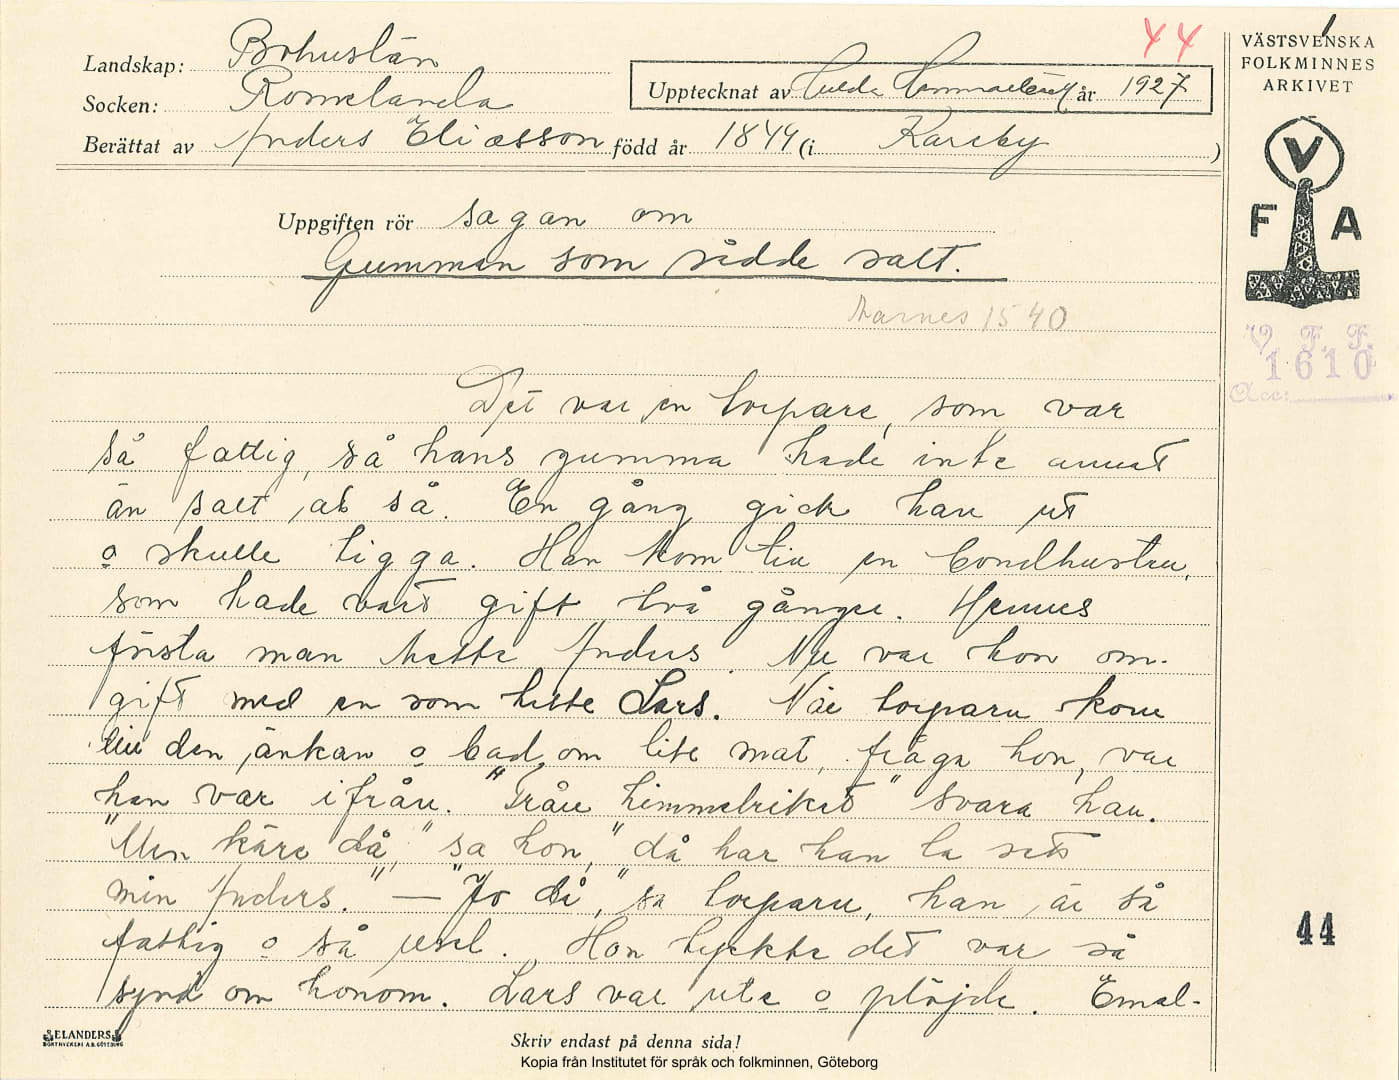 Landskap: Bohuslän
Socken: Romelanda
Upptecknat av Hulda Hammarbäck år 1927
Berättat av Anders Eliasson född år 1844 (i Kareby)
44
Uppgiften rör sagan om
Gumman som sådde salt.
Aarnes 1540
Det var en torpare, som var
så fattig, så hans gumma hade inte annat
än salt att så. En gång gick han ut
o skulle tigga. Han kom till en bondhustru,
som hade vart gift två gånger. Hennes
första man hette Anders. Nu var hon om-
gift med en som hette Lars. När torparn kom
till den änkan o bad om lite mat, fråga hon, var
han var ifrån. "Från himmelriket" svara han.
"Men käre då," sa hon, "då har han la sett
min Anders." — "Jo då," sa torparn, han är så
fattig o så usel. Hon tyckte det var så
synd om honom. Lars var ute o plöjde. Emel-
VÄSTSVENSKA
FOLKMINNES
ARKIVET
V
F A
V. F. F.
1610
Acc:
44
ELANDERS
BOKTRYCKERI A.B. GÖTEBORG
Skriv endast på denna sida!
Kopia från Institutet för språk och folkminnen, Göteborg